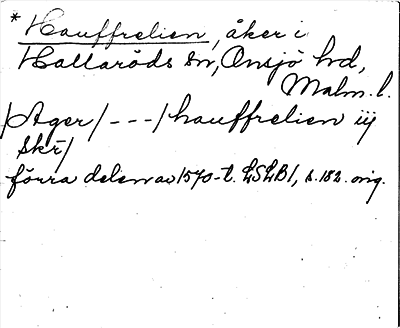 * Hauffrelien, åker i
Hallaröds sn, Onsjö hd,
Malm. l.
/Ager/ --- / hauffrelien iij
skr/
förra delen av 1570-t. LSLB1, s. 182. orig.